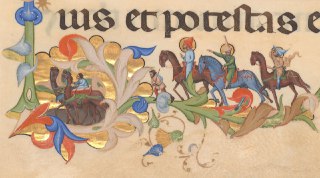 ius et potestas e